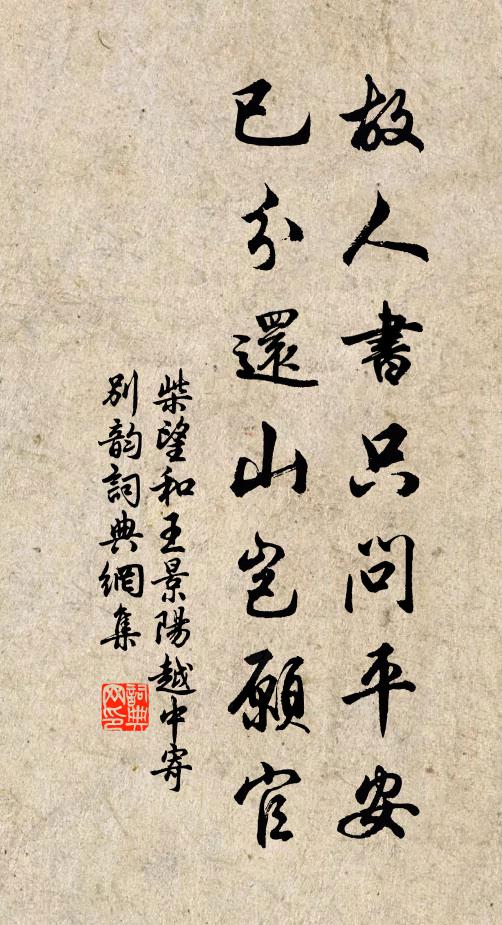 故人書只問平安
已分還山豈願官
柴望和王景陽越中寄
別韵詞典網集
詞典
网印